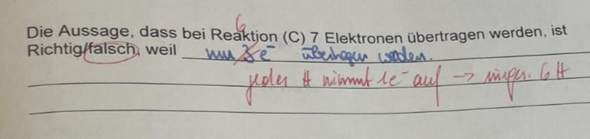 Die Aussage, dass bei Reaktion (C) 7 Elektronen übertragen werden, ist
6
Richtig/falsch, weil nur 3 e⁻ übertragen werden.
jedes H nimmt 1e⁻ auf → insges. 6 H